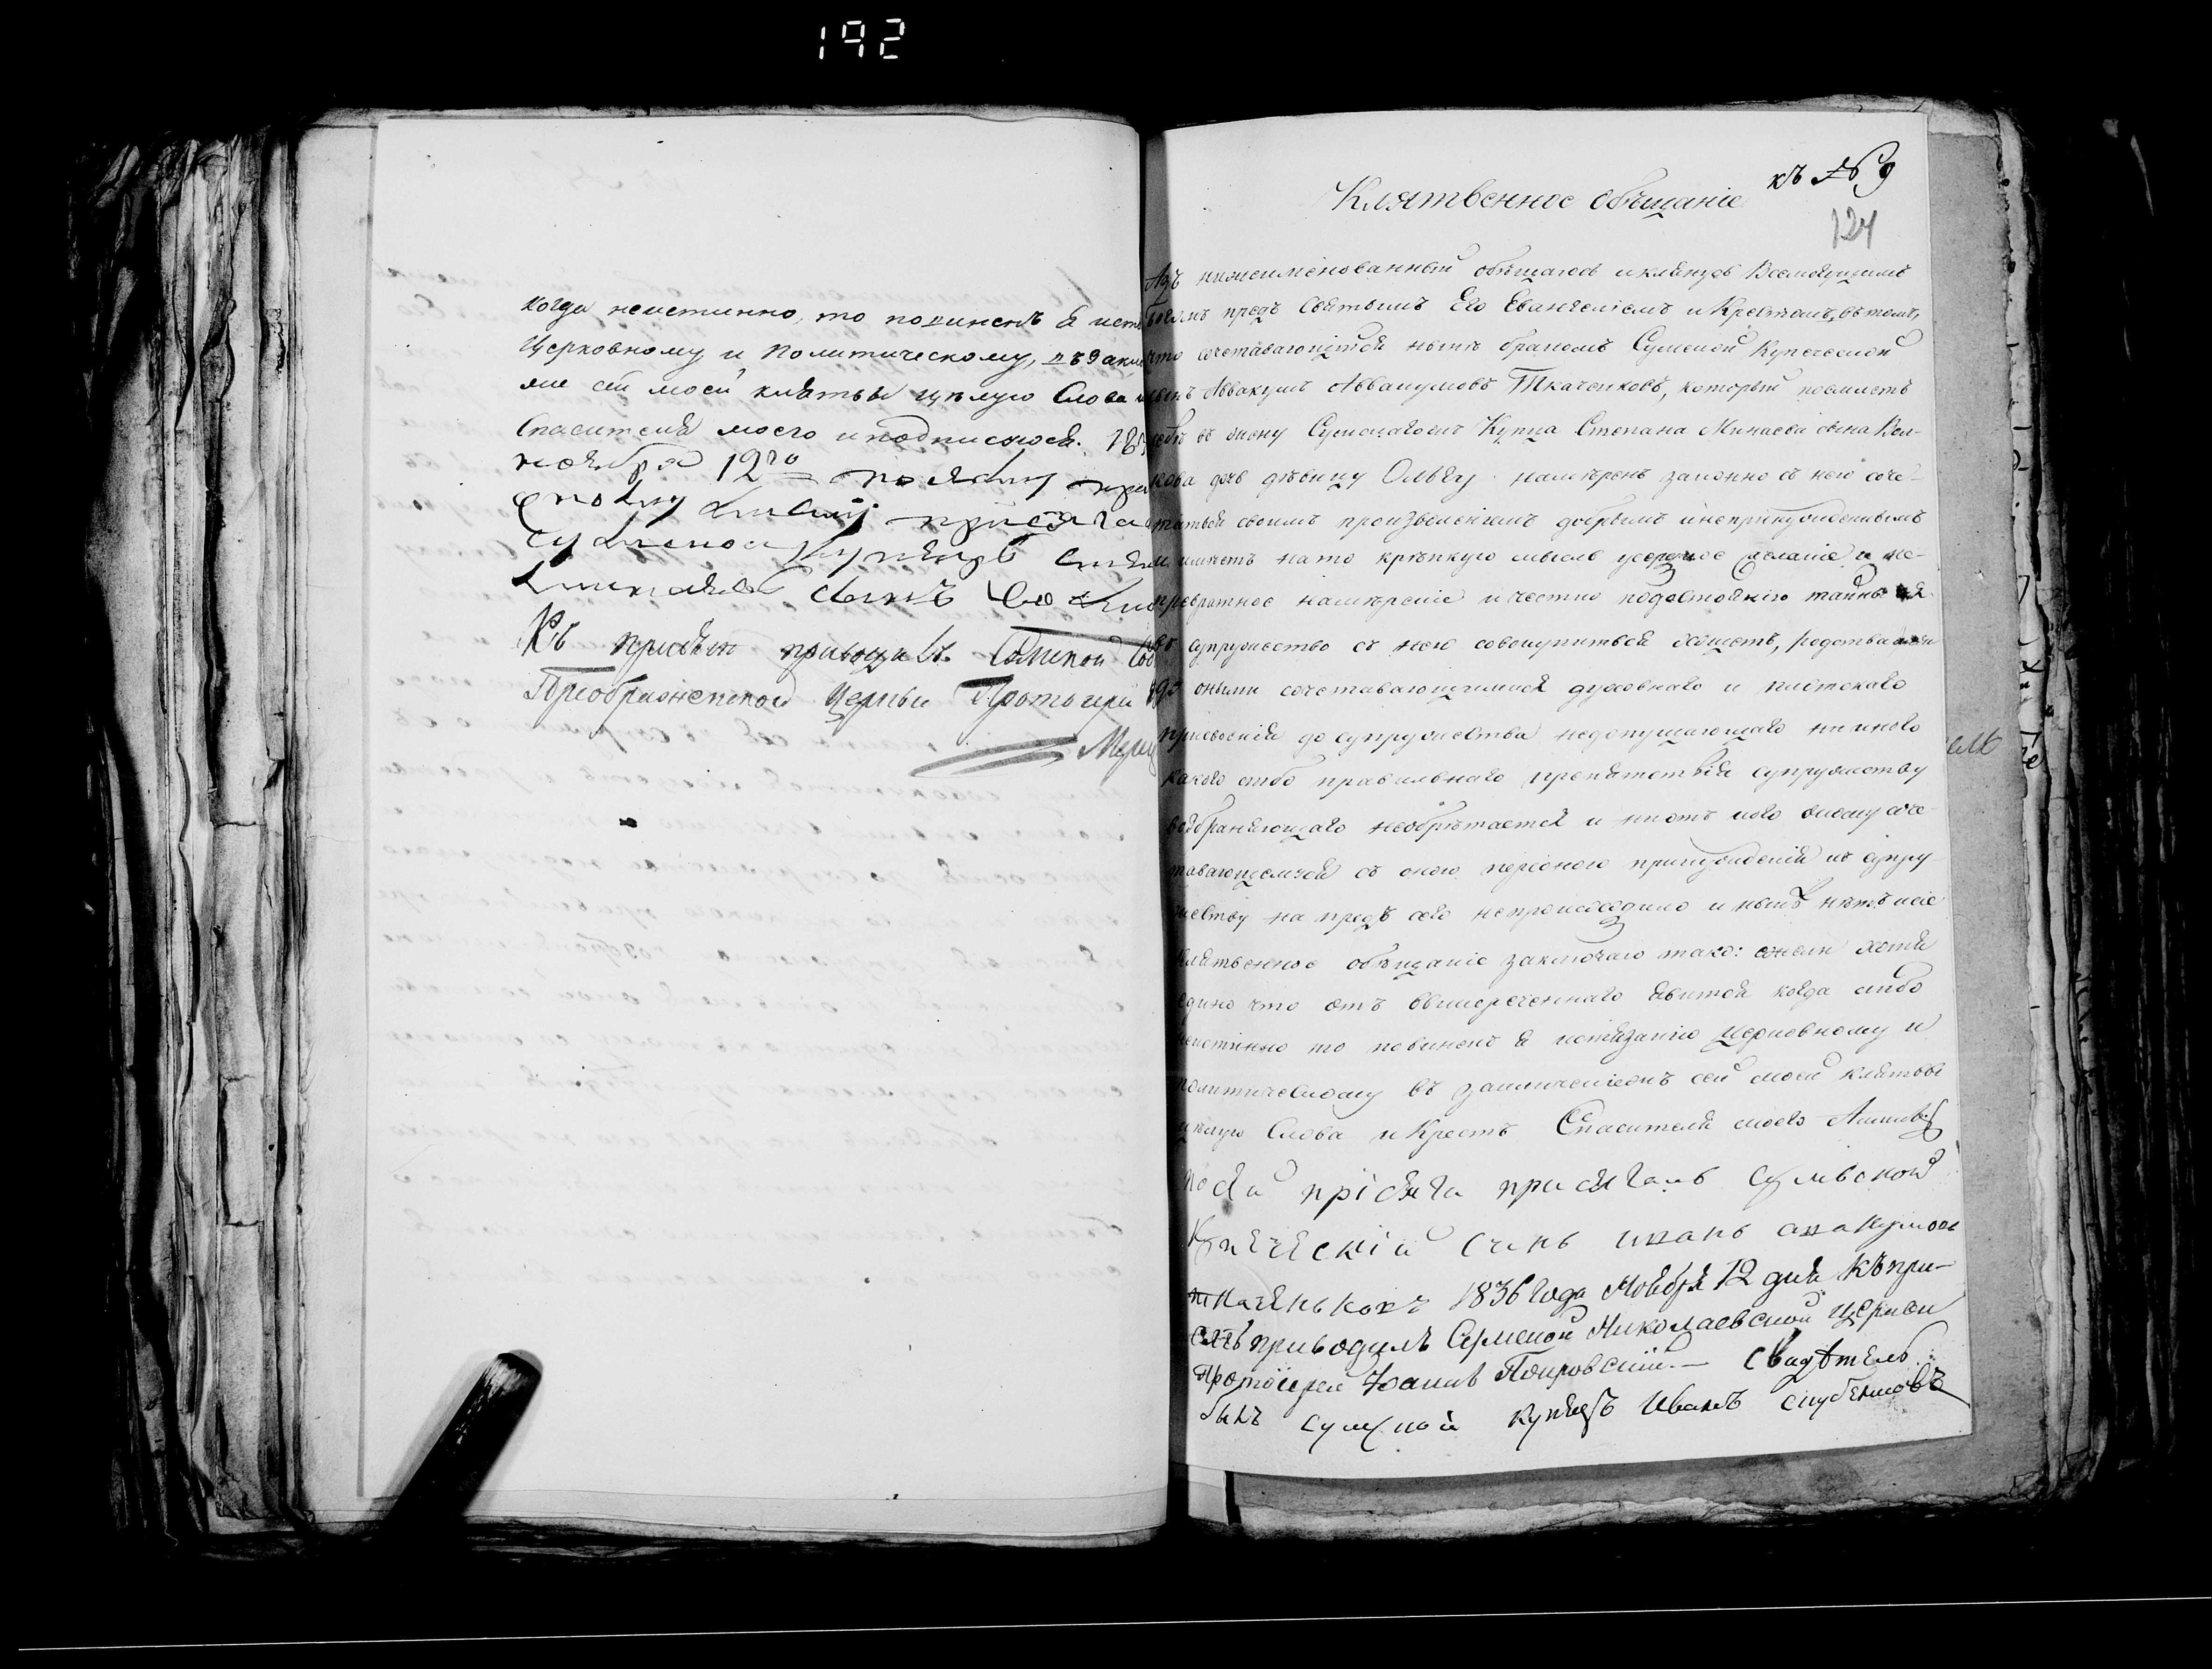 192
когда неистинно, то повиненъ я ист
Церковному и Политическому, въ закл
ние сей моей клятвы цѣлую Слова и
Спасителя моего и подписуюся. 18
ноября 12го по сяму
присяга
купецъ
сынъ Во
Къ присягѣ приводилъ Сумской
Преображенской Церкви Протоиерей
къ № 9
Клятвенное обѣщаніе
124
Азъ нижеименованный обѣщаюсь и клянусь Всемогущимъ
Богомъ предъ Святымъ Его Евангеліемъ и Крестомъ, въ томъ,
что сочетавающійся нынѣ бракомъ Сумской Купеческой
сынъ Аввакумъ Аввакумовъ Ткаченковъ, который поемлетъ
себѣ въ жену Сумскаго Купца Степана Минаева сына Вол-
кова дочь дѣвицу Ольгу намѣренъ законно съ нею соче-
таться своимъ произволеніемъ добрымъ и непринужденнымъ
и имѣетъ на то крѣпкую мысль усердное желаніе и не-
превратное намѣреніе и честно подостойнію тайны
въ супружество съ нею совокупиться хощетъ, родства
оными сочетавающимися духовнаго и плотскаго
присвоенія до супружества недопущающаго ни инаго
какого либо правильнаго препятствія супружеству
возбраняющаго необрѣтается и ни отъ кого оному соче-
тавающемуся съ оною персоною принужденія къ супру-
жеству на предъ сего непроисходило и нынѣ нѣтъ сіе
Клятвенное обѣщаніе заключаю тако: ежели хотя
едино что отъ вышереченнаго явится когда либо
неистинно то повиненъ я истязанію Церковному и
политическому въ заключеніемъ сей моей клятвы
цѣлую Слова и Крестъ Спасителя моего Аминь
посей прісяга присягалъ сумской
Купеческій синъ иванъ авакумовъ
ткаченьковъ 1836 года Ноября 12 дня Къ при-
сягѣ приводилъ Сумской Николаевской Церкви
Протоіерей Іоаннъ Покровскій. — Свидѣтель
былъ сумской купецъ Иванъ